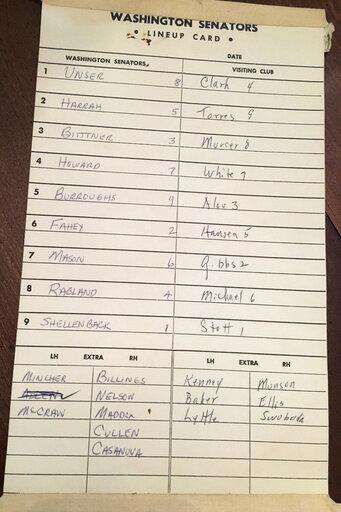 WASHINGTON SENATORS
• LINEUP CARD •
WASHINGTON SENATORS, DATE
VISITING CLUB
1 UNSER 8 Clark 4
2 HARRAH 5 Torres 9
3 BIITTNER 3 Murcer 8
4 HOWARD 7 White 7
5 BURROUGHS 9 Alou 3
6 FAHEY 2 Hansen 5
7 MASON 6 Gibbs 2
8 RAGLAND 4 Michael 6
9 SHELLENBACK 1 Stott 1
LH EXTRA RH LH EXTRA RH
MINCHER BILLINGS Kenney Munson
ALLEN NELSON Baker Ellis
McCRAW MADDOX Lyttle Swoboda
CULLEN
CASANOVA